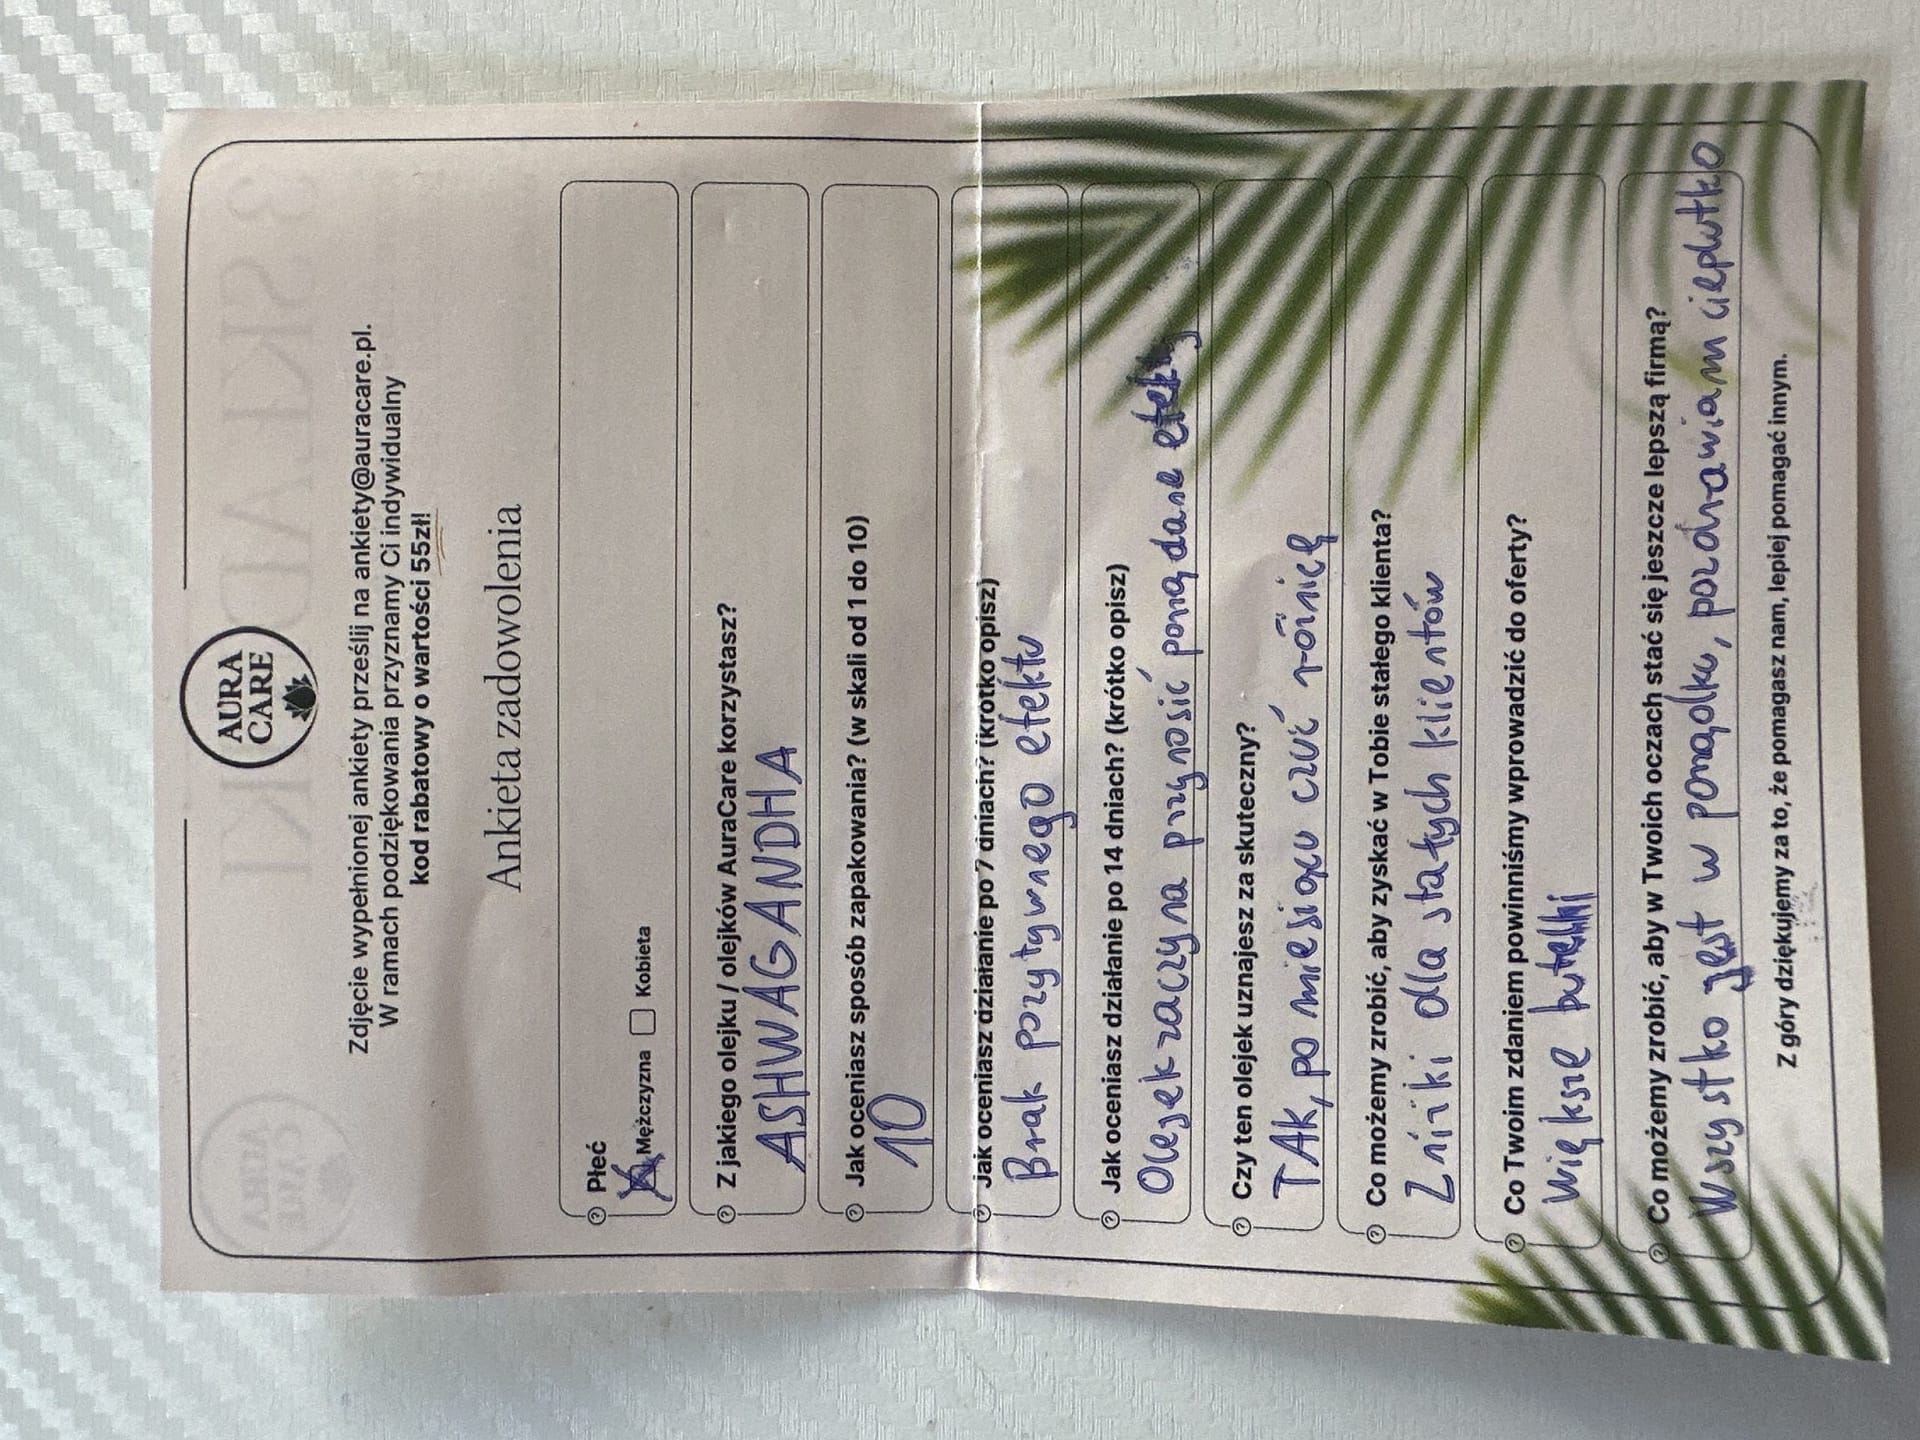 AURA
CARE
Zdjęcie wypełnionej ankiety prześlij na ankiety@auracare.pl.
W ramach podziękowania przyznamy Ci indywidualny
kod rabatowy o wartości 55zł!
Ankieta zadowolenia
Płeć
Mężczyzna Kobieta
Z jakiego olejku / olejków AuraCare korzystasz?
ASHWAGANDHA
Jak oceniasz sposób zapakowania? (w skali od 1 do 10)
10
Jak oceniasz działanie po 7 dniach? (krótko opisz)
Brak pozytywnego efektu
Jak oceniasz działanie po 14 dniach? (krótko opisz)
Olejek zaczyna przynosić porządane efekty
Czy ten olejek uznajesz za skuteczny?
TAK, po miesiącu czuć różnicę
Co możemy zrobić, aby zyskać w Tobie stałego klienta?
Zniżki dla stałych klientów
Co Twoim zdaniem powinniśmy wprowadzić do oferty?
Większe butelki
Co możemy zrobić, aby w Twoich oczach stać się jeszcze lepszą firmą?
Wszystko jest w porządku, pozdrawiam cieplutko
Z góry dziękujemy za to, że pomagasz nam, lepiej pomagać innym.